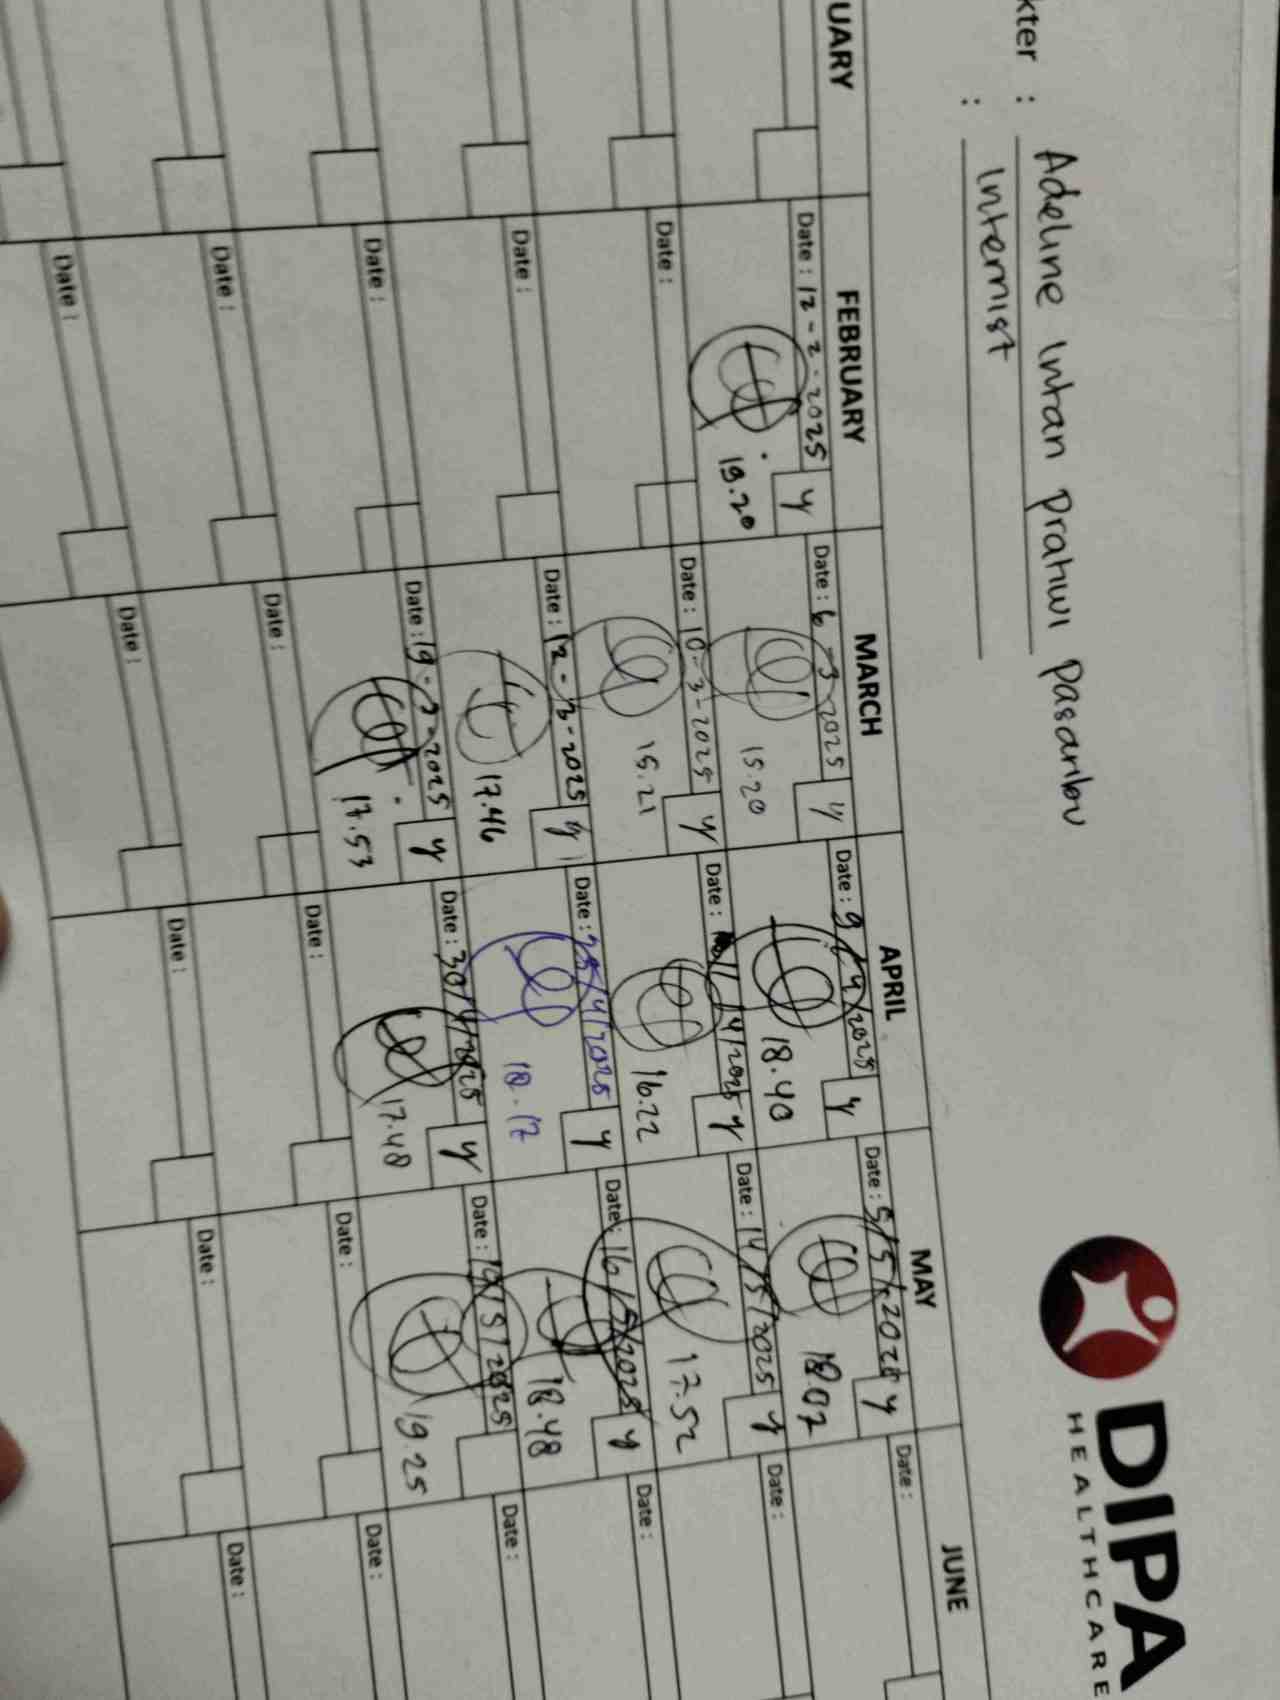 DIPA
HEALTHCARE
kter : Adeline Intan Pratiwi Pasaribu
: Internist
UARY
FEBRUARY
MARCH
APRIL
MAY
JUNE
Date : 12-2-2025 y
19.20
Date : 6-3-2025 y
15.20
Date : 9/4/2025 y
18.40
Date : 5/5/2025 y
18.02
Date :
Date :
Date : 10-3-2025 y
15.21
Date : 11/4/2025 y
16.22
Date : 14/5/2025 y
17.52
Date :
Date :
Date : 12-3-2025 y
17.46
Date : 25/4/2025 y
18.17
Date : 16/5/2025 y
18.48
Date :
Date :
Date : 19-3-2025 y
17.53
Date : 30/4/2025 y
17.48
Date : 19/5/2025
19.25
Date :
Date :
Date :
Date :
Date :
Date :
Date :
Date :
Date :
Date :
Date :